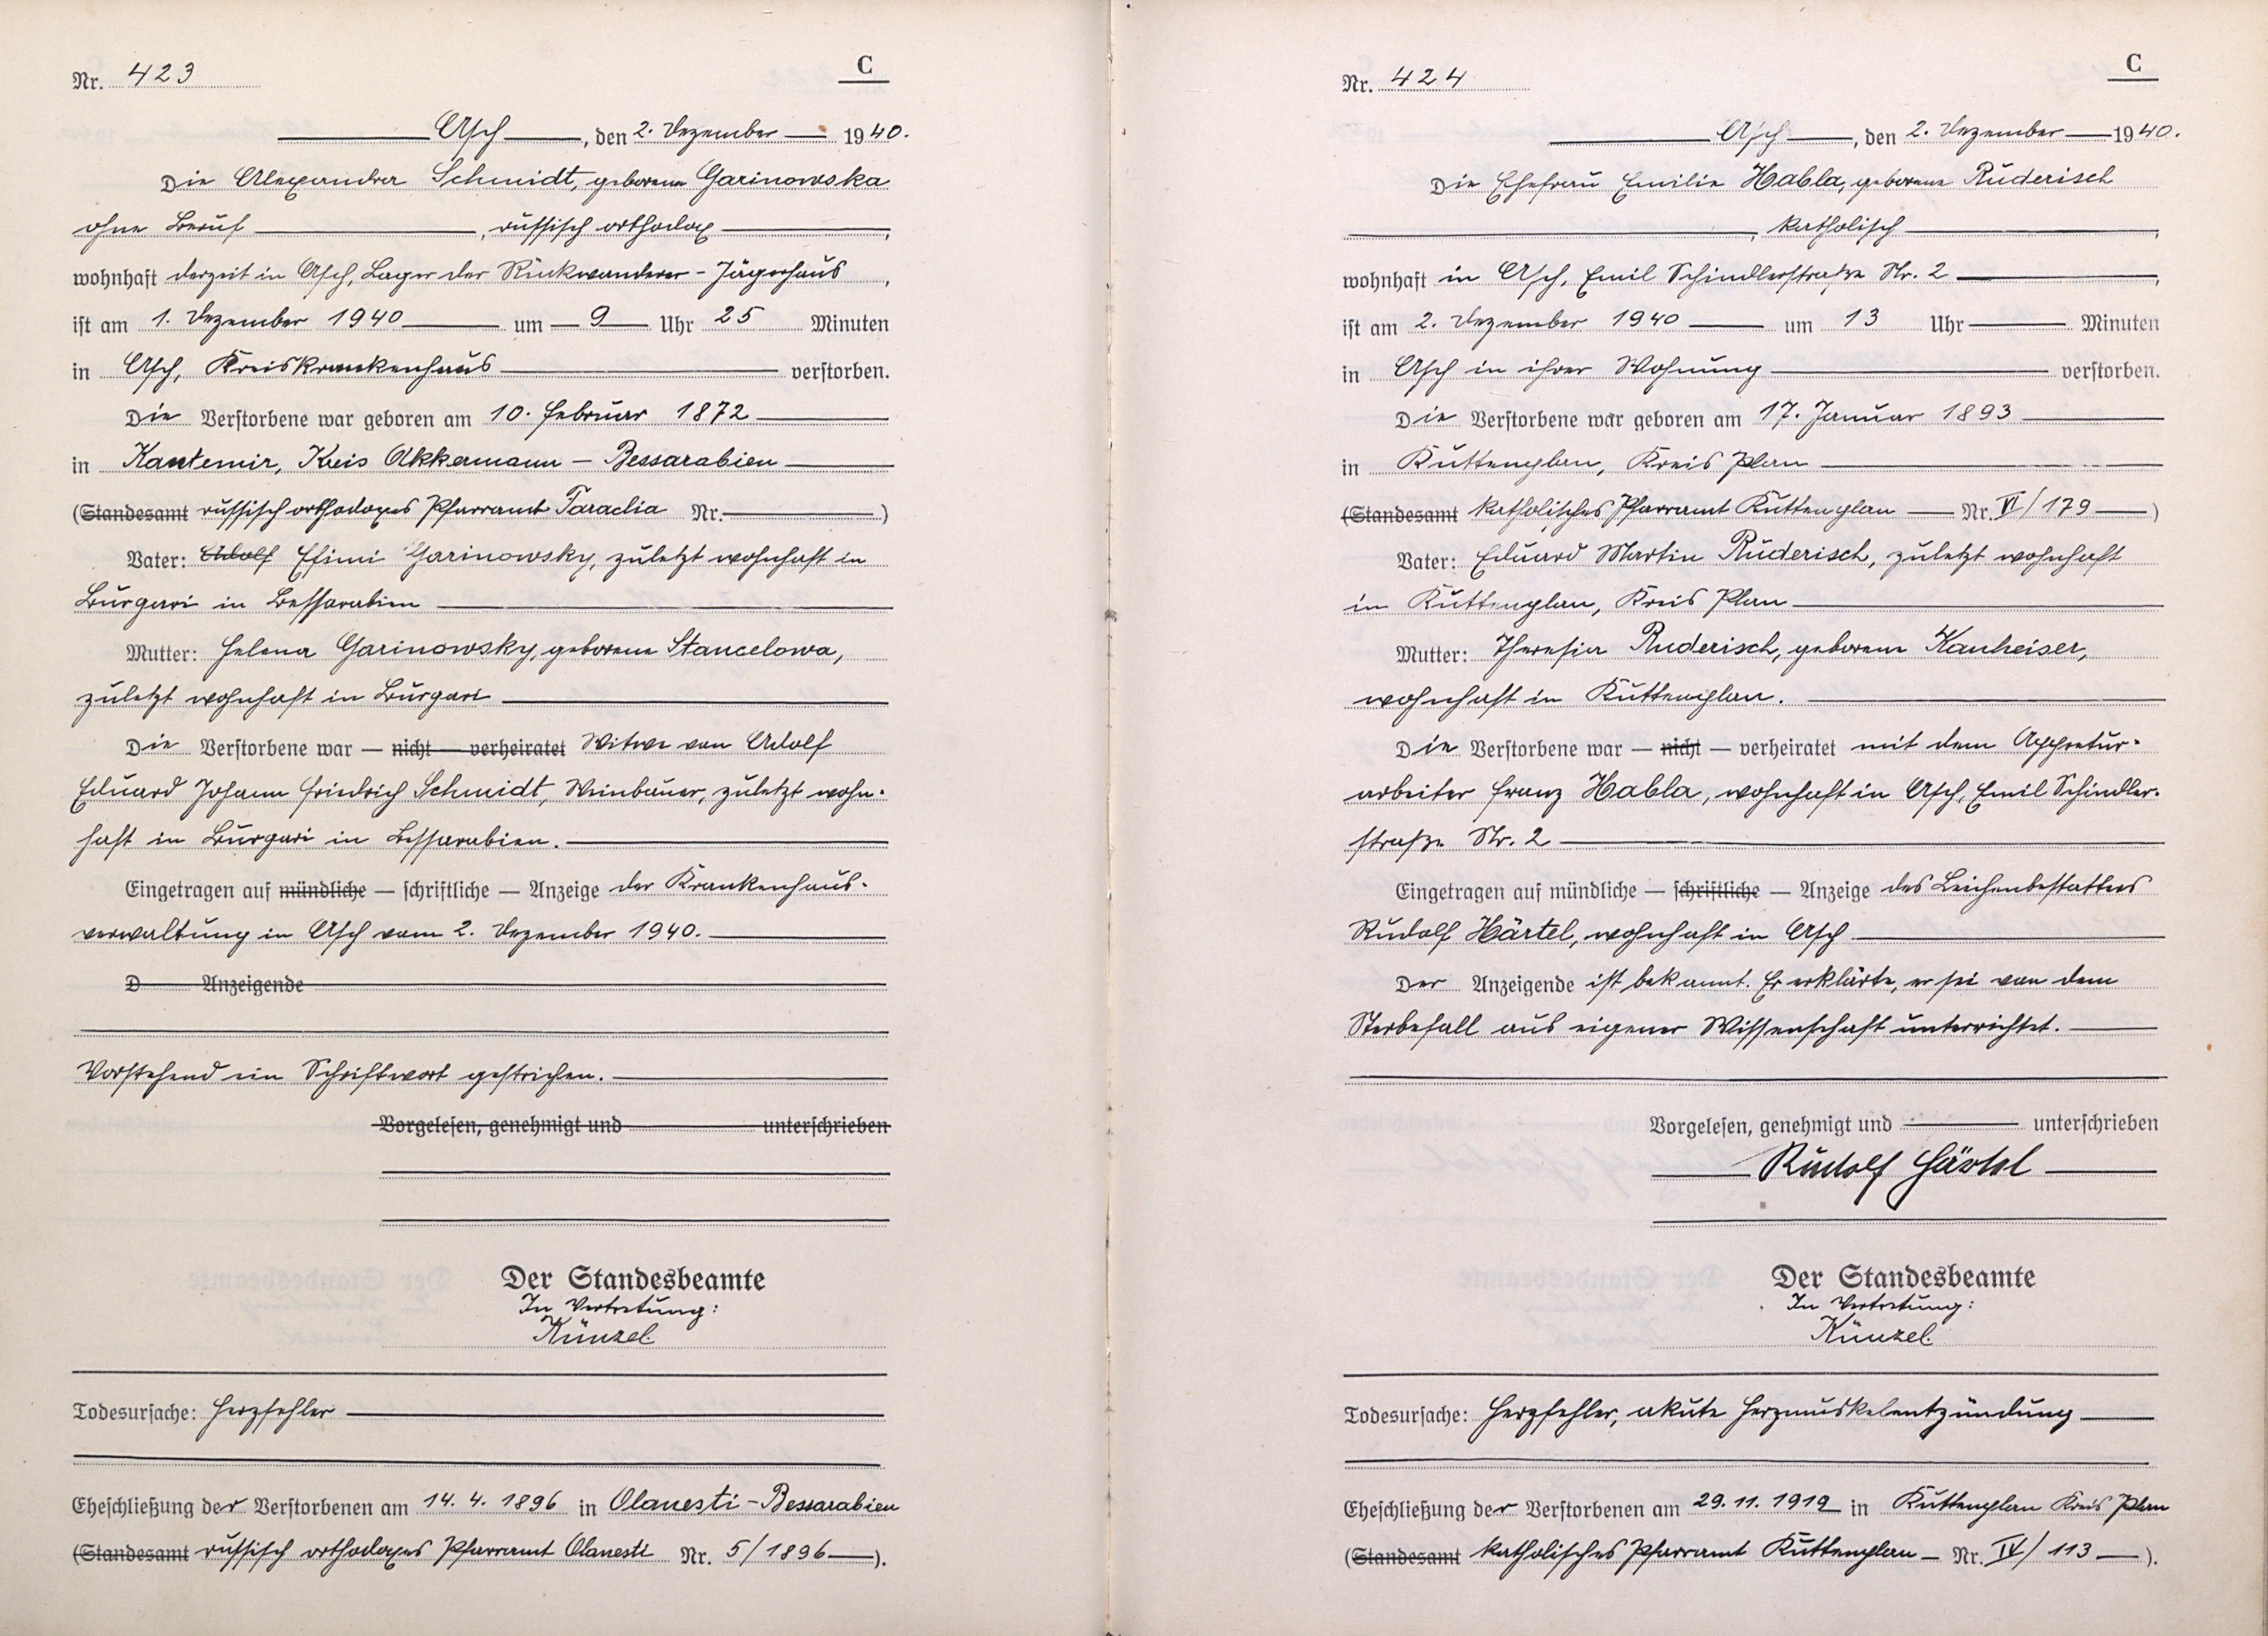 Nr. 423
C
Asch, den 2. Dezember 1940.
Die Alexandra Schmidt, geborene Garinowska
ohne Beruf, russisch orthodox,
wohnhaft derzeit in Asch, Lager der Rückwanderer - Jägerhaus,
ist am 1. Dezember 1940 um 9 Uhr 25 Minuten
in Asch, Kreiskrankenhaus verstorben.
Die Verstorbene war geboren am 10. Februar 1872
in Kantemir, Kreis Akkermann - Bessarabien
(Standesamt russisch orthodoxes Pfarramt Taraclia Nr. )
Vater: Adolf Efimi Garinowsky, zuletzt wohnhaft in
Burgari in Bessarabien
Mutter: Helena Garinowsky, geborene Stancelowa,
zuletzt wohnhaft in Burgari
Die Verstorbene war — nicht — verheiratet Witwe von Adolf
Eduard Johann Friedrich Schmidt, Weinbauer, zuletzt wohn-
haft in Burgari in Bessarabien.
Eingetragen auf mündliche — schriftliche — Anzeige der Krankenhaus-
verwaltung in Asch vom 2. Dezember 1940.
D Anzeigende
Vorstehend ein Schriftwort gestrichen.
Vorgelesen, genehmigt und unterschrieben
Der Standesbeamte
In Vertretung:
Künzel.
Todesursache: Herzfehler
Eheschließung der Verstorbenen am 14. 4. 1896 in Olanesti - Bessarabien
(Standesamt russisch orthodoxes Pfarramt Olanesti Nr. 5/1896 ).
Nr. 424
C
Asch, den 2. Dezember 1940.
Die Ehefrau Emilie Habla, geborene Ruderisch
, katholisch,
wohnhaft in Asch, Emil Schindlerstraße Nr. 2,
ist am 2. Dezember 1940 um 13 Uhr Minuten
in Asch in ihrer Wohnung verstorben.
Die Verstorbene war geboren am 17. Januar 1893
in Kuttenplan, Kreis Plan
(Standesamt katholisches Pfarramt Kuttenplan Nr. VI/179 )
Vater: Eduard Martin Ruderisch, zuletzt wohnhaft
in Kuttenplan, Kreis Plan
Mutter: Theresia Ruderisch, geborene Kanheiser,
wohnhaft in Kuttenplan.
Die Verstorbene war — nicht — verheiratet mit dem Appretur-
arbeiter Franz Habla, wohnhaft in Asch, Emil Schindler-
straße Nr. 2
Eingetragen auf mündliche — schriftliche — Anzeige des Leichenbestatters
Rudolf Härtel, wohnhaft in Asch
Der Anzeigende ist bekannt. Er erklärte, er sei von dem
Sterbefall aus eigener Wissenschaft unterrichtet.
Vorgelesen, genehmigt und unterschrieben
Rudolf Härtel
Der Standesbeamte
In Vertretung:
Künzel.
Todesursache: Herzfehler, akute Herzmuskelentzündung
Eheschließung der Verstorbenen am 29. 11. 1919 in Kuttenplan Kreis Plan
(Standesamt katholisches Pfarramt Kuttenplan - Nr. IV/113 ).